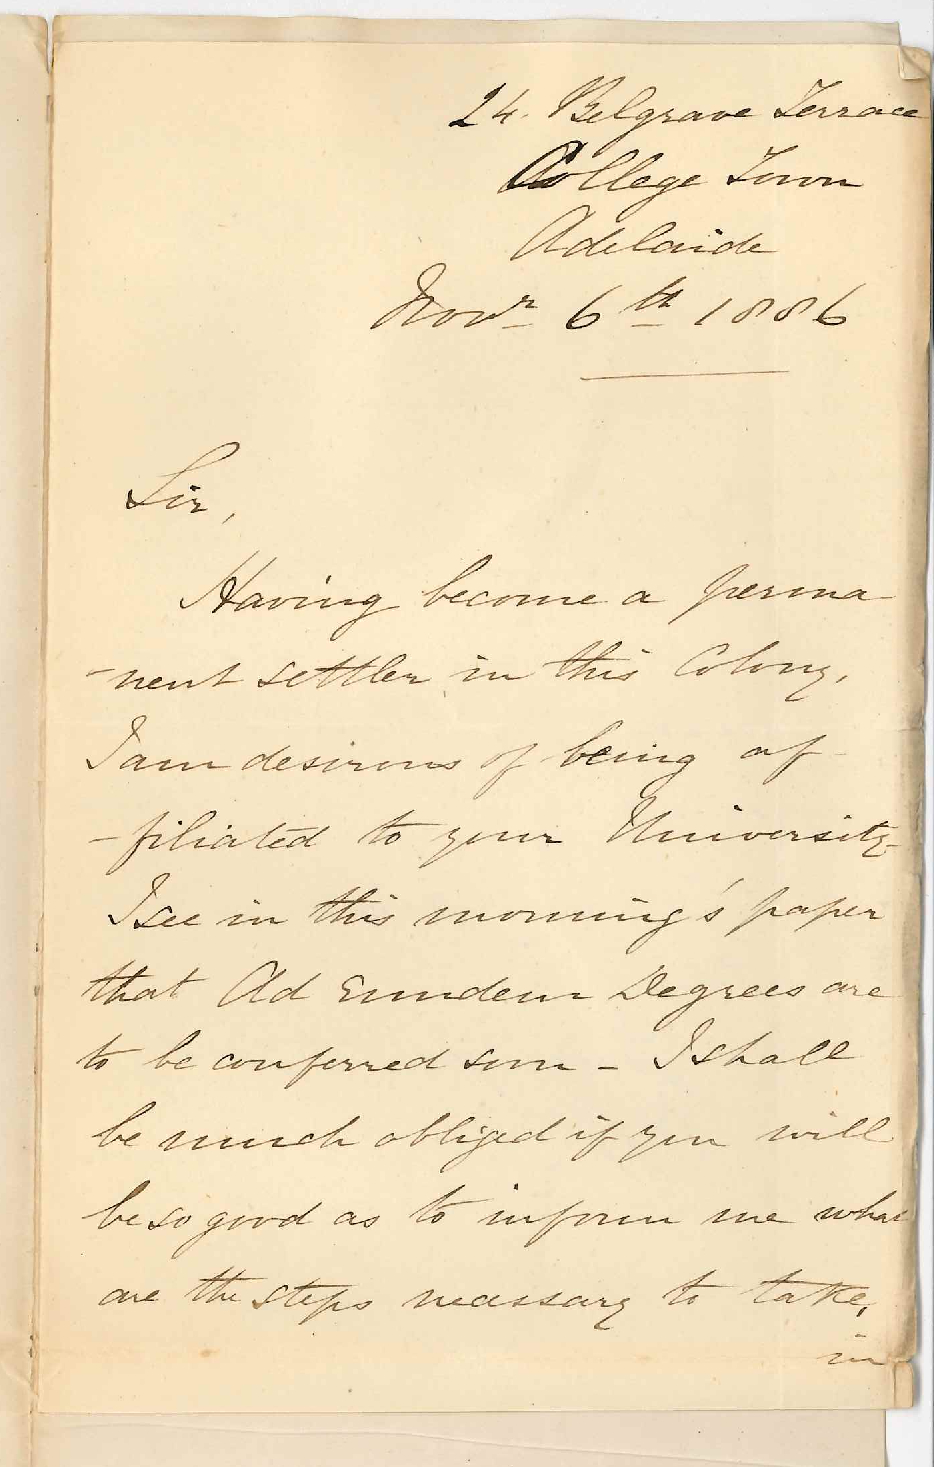 24. Belgrave Terrace
College Town
Adelaide
Novr 6th 1886
Sir,
Having become a perma
-nent settler in this Colony,
I am desirous of being af-
-filiated to your University-
I see in this morning's paper
that Ad Eundem Degrees are
to be conferred soon - I shall
be much obliged if you will
be so good as to inform me what
are the steps necessary to take,
in